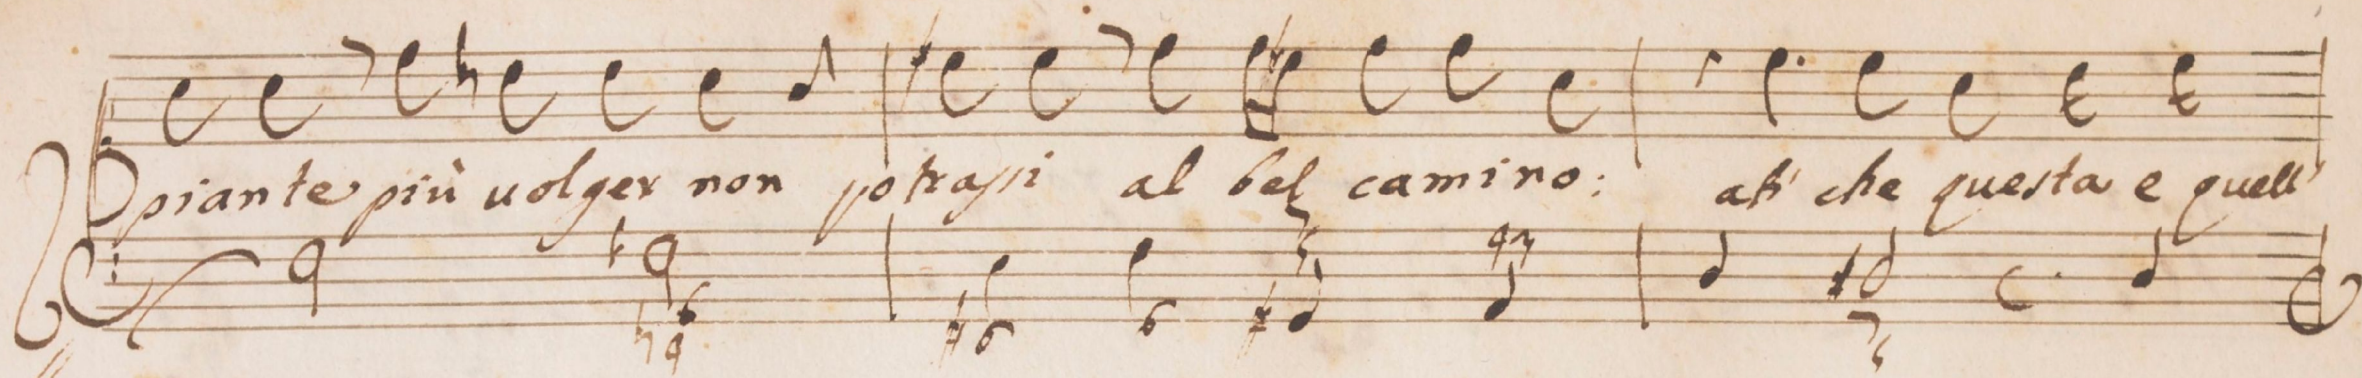 piante più uolger non potrassi al bel camino: ahi che questa e quell'